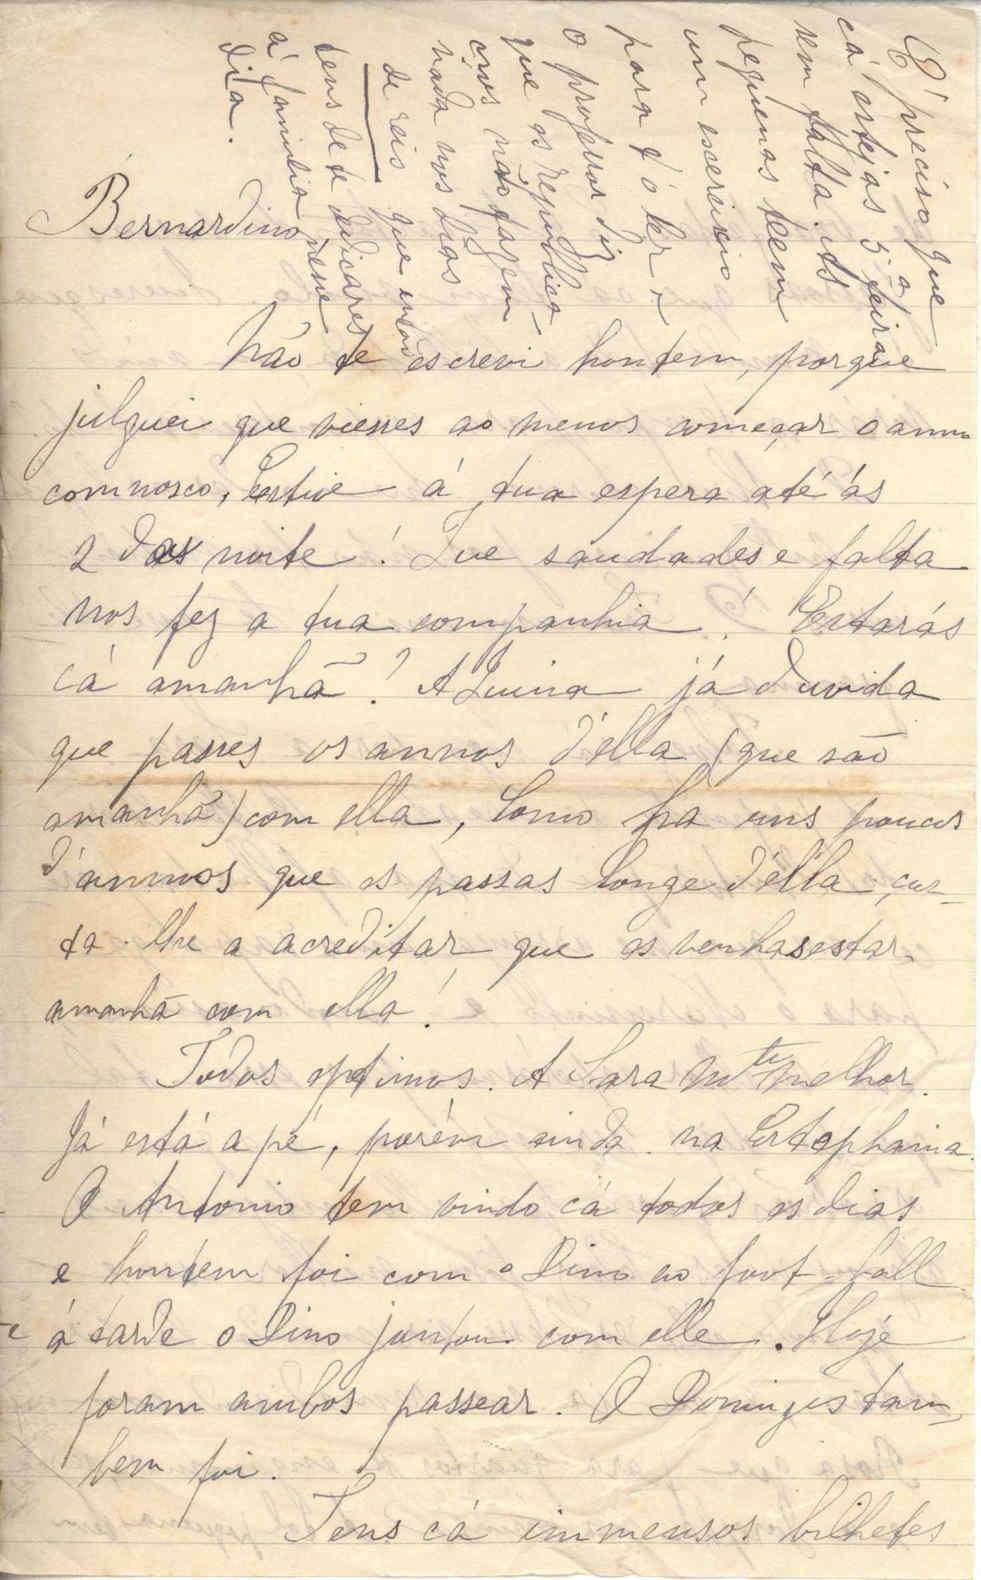 É preciso que
cá estejas 5ª feira
sem falta. As
pequenas teem
um exercicio
para tó ler e
o professor diz
que os republica-
nos não fazem
nada nos dias
de reis que então
tens de te dedicares
á familia nesse
dia.
Bernardino
Não te escrevi hontem, porque
julguei que viesses ao menos começar o anno
comnosco. Estive á tua espera até ás
2 da noite! Que saudades e falta
nos fez a tua companhia! Estarás
cá amanhã? A Luiza já duvida
que passes os annos d'ella (que são
amanhã) com ella, como ha uns poucos
d'annos que os passas longe d'ella; cus-
ta-lhe a acreditar que os venhas estar
amanhã com ella!
Todos optimos. A Sara mto melhor.
Já está a pé, porém ainda na Estephania.
O Antonio tem vindo cá todos os dias
e hontem foi com o Dino ao foot-ball
e á tarde o Dino jantou com elle. Hoje
foram ambos passear. O Domingos tam-
bem foi.
Tens cá immensos bilhetes